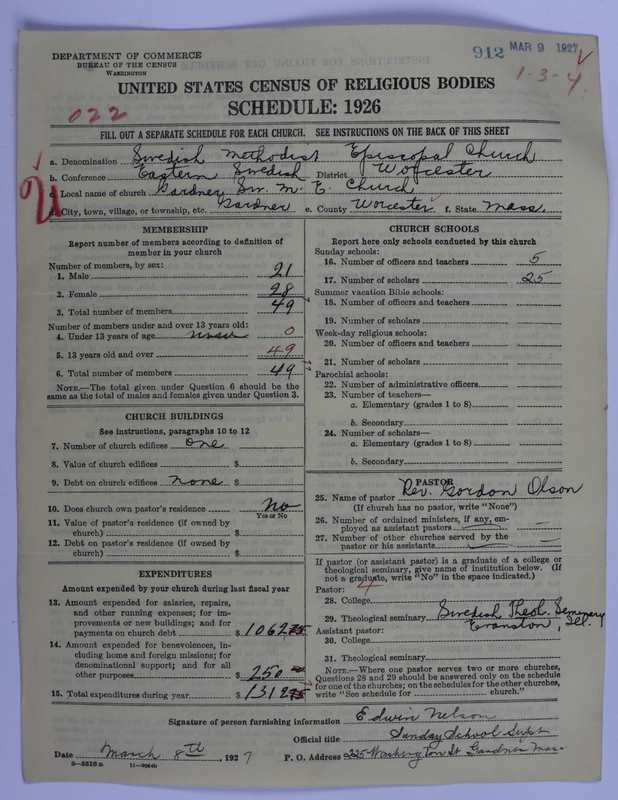 DEPARTMENT OF COMMERCE
BUREAU OF THE CENSUS
WASHINGTON
912 MAR 9 1927
1-3-4
UNITED STATES CENSUS OF RELIGIOUS BODIES
SCHEDULE: 1926
022
FILL OUT A SEPARATE SCHEDULE FOR EACH CHURCH. SEE INSTRUCTIONS ON THE BACK OF THIS SHEET
a. Denomination Swedish Methodist Episcopal Church
b. Conference Eastern Swedish District Worcester
c. Local name of church Gardner Sw. M. E. Church
d. City, town, village, or township, etc. Gardner e. County Worcester f. State Mass.
MEMBERSHIP
Report number of members according to definition of
member in your church
Number of members, by sex:
1. Male 21
2. Female 28
3. Total number of members 49
Number of members under and over 13 years old:
4. Under 13 years of age none 0
5. 13 years old and over 49
6. Total number of members 49
NOTE.—The total given under Question 6 should be the
same as the total of males and females given under Question 3.
CHURCH BUILDINGS
See instructions, paragraphs 10 to 12
7. Number of church edifices one
8. Value of church edifices $
9. Debt on church edifices none $
10. Does church own pastor's residence No
Yes or No
11. Value of pastor's residence (if owned by
church) $
12. Debt on pastor's residence (if owned by
church) $
EXPENDITURES
Amount expended by your church during last fiscal year
13. Amount expended for salaries, repairs,
and other running expenses; for im-
provements or new buildings; and for
payments on church debt $ 1062 75
14. Amount expended for benevolences, in-
cluding home and foreign missions; for
denominational support; and for all
other purposes $ 250
15. Total expenditures during year $ 1312 75
CHURCH SCHOOLS
Report here only schools conducted by this church
Sunday schools:
16. Number of officers and teachers 5
17. Number of scholars 25
Summer vacation Bible schools:
18. Number of officers and teachers
19. Number of scholars
Week-day religious schools:
20. Number of officers and teachers
21. Number of scholars
Parochial schools:
22. Number of administrative officers
23. Number of teachers—
a. Elementary (grades 1 to 8)
b. Secondary
24. Number of scholars—
a. Elementary (grades 1 to 8)
b. Secondary
PASTOR
25. Name of pastor Rev. Gordon Olson
(If church has no pastor, write "None")
26. Number of ordained ministers, if any, em-
ployed as assistant pastors —
27. Number of other churches served by the
pastor or his assistants —
If pastor (or assistant pastor) is a graduate of a college or
theological seminary, give name of institution below. (If
not a graduate, write "No" in the space indicated.)
Pastor: 4
28. College
29. Theological seminary Swedish Theol. Seminary
Evanston, Ill.
Assistant pastor:
30. College
31. Theological seminary
NOTE.—Where one pastor serves two or more churches,
Questions 28 and 29 should be answered only on the schedule
for one of the churches; on the schedules for the other churches,
write "See schedule for church."
Signature of person furnishing information Edwin Nelson
Official title Sunday School Supt
Date March 8th, 1927 P. O. Address 225 Washington St Gardner Mass
8-5518a 11-9664b